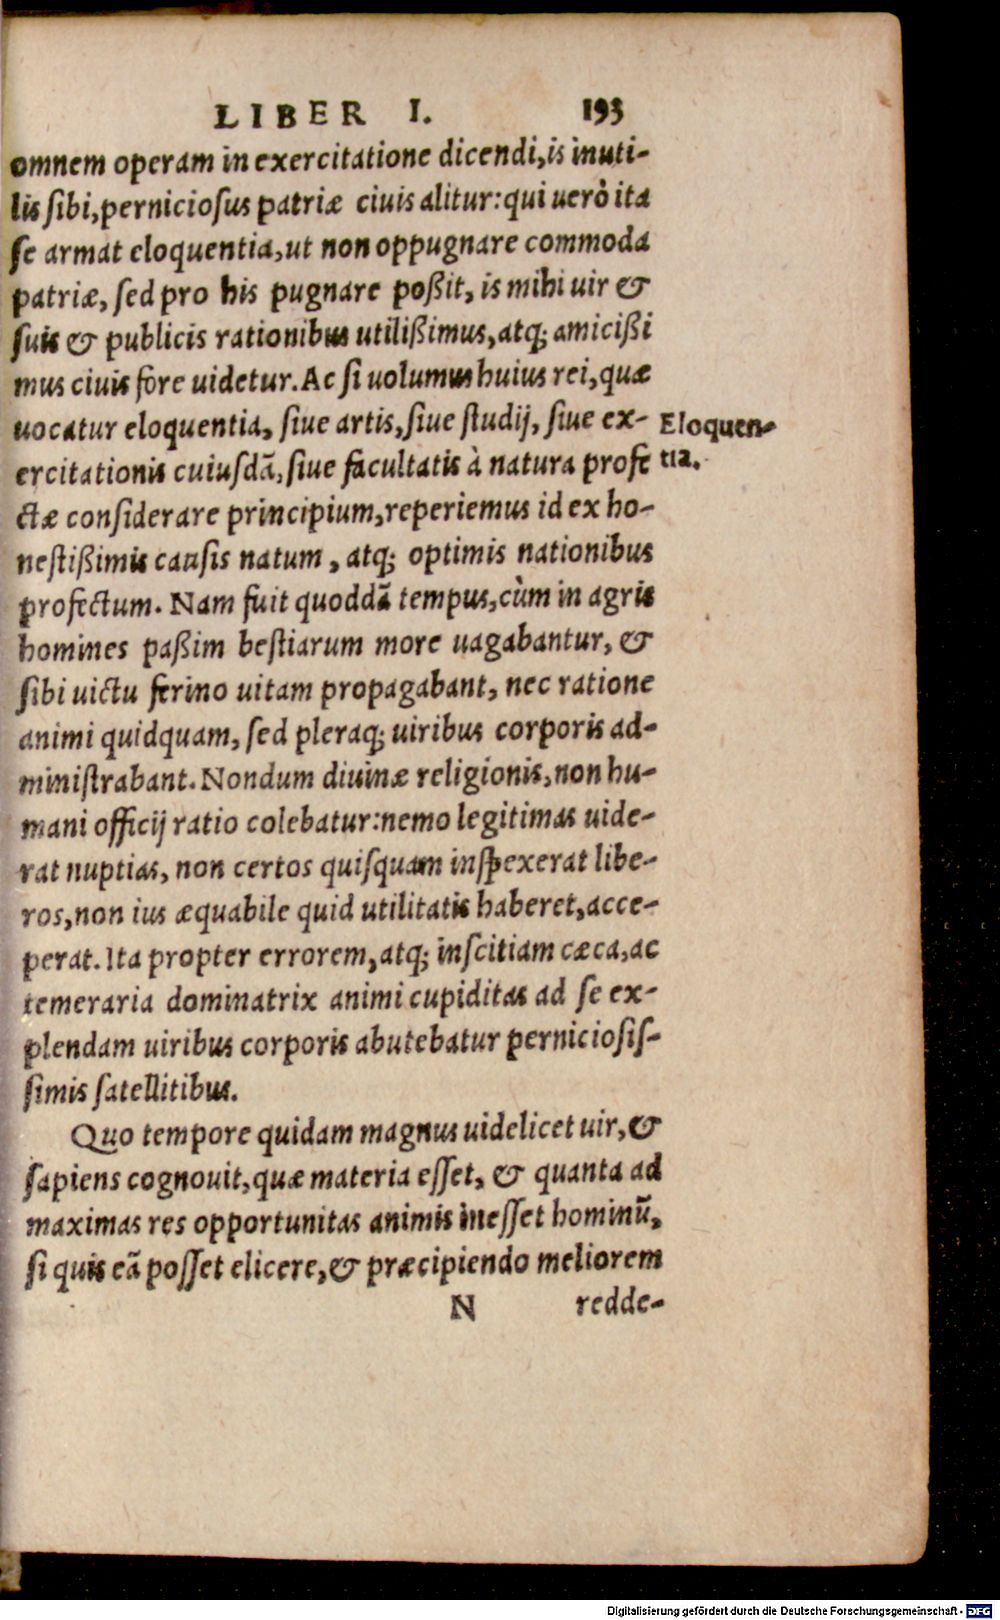 LIBER I. 193
omnem operam in exercitatione dicendi, is inuti-
lis ſibi, pernicioſus patriæ ciuis alitur: qui uerò ita
ſe armat eloquentia, ut non oppugnare commoda
patriæ, ſed pro his pugnare poßit, is mihi uir &
ſuis & publicis rationibus utilißimus, atq; amicißi
mus ciuis fore uidetur. Ac ſi uolumus huius rei, quæ
uocatur eloquentia, ſiue artis, ſiue ſtudij, ſiue ex-
Eloquen-
ercitationis cuiuſdā, ſiue facultatis à natura profe
tia.
ctæ conſiderare principium, reperiemus id ex ho-
neſtißimis cauſis natum, atq; optimis nationibus
profectum. Nam fuit quoddā tempus, cùm in agris
homines paßim beſtiarum more uagabantur, &
ſibi uictu ferino uitam propagabant, nec ratione
animi quidquam, ſed pleraq; uiribus corporis ad-
miniſtrabant. Nondum diuinæ religionis, non hu-
mani officij ratio colebatur: nemo legitimas uide-
rat nuptias, non certos quiſquam inſpexerat libe-
ros, non ius æquabile quid utilitatis haberet, acce-
perat. Ita propter errorem, atq; inſcitiam cæca, ac
temeraria dominatrix animi cupiditas ad ſe ex-
plendam uiribus corporis abutebatur pernicioſiſ-
ſimis ſatellitibus.
Quo tempore quidam magnus uidelicet uir, &
ſapiens cognouit, quæ materia eſſet, & quanta ad
maximas res opportunitas animis ineſſet hominū,
ſi quis eā poſſet elicere, & præcipiendo meliorem
N redde-
Digitalisierung gefördert durch die Deutsche Forschungsgemeinschaft - DFG